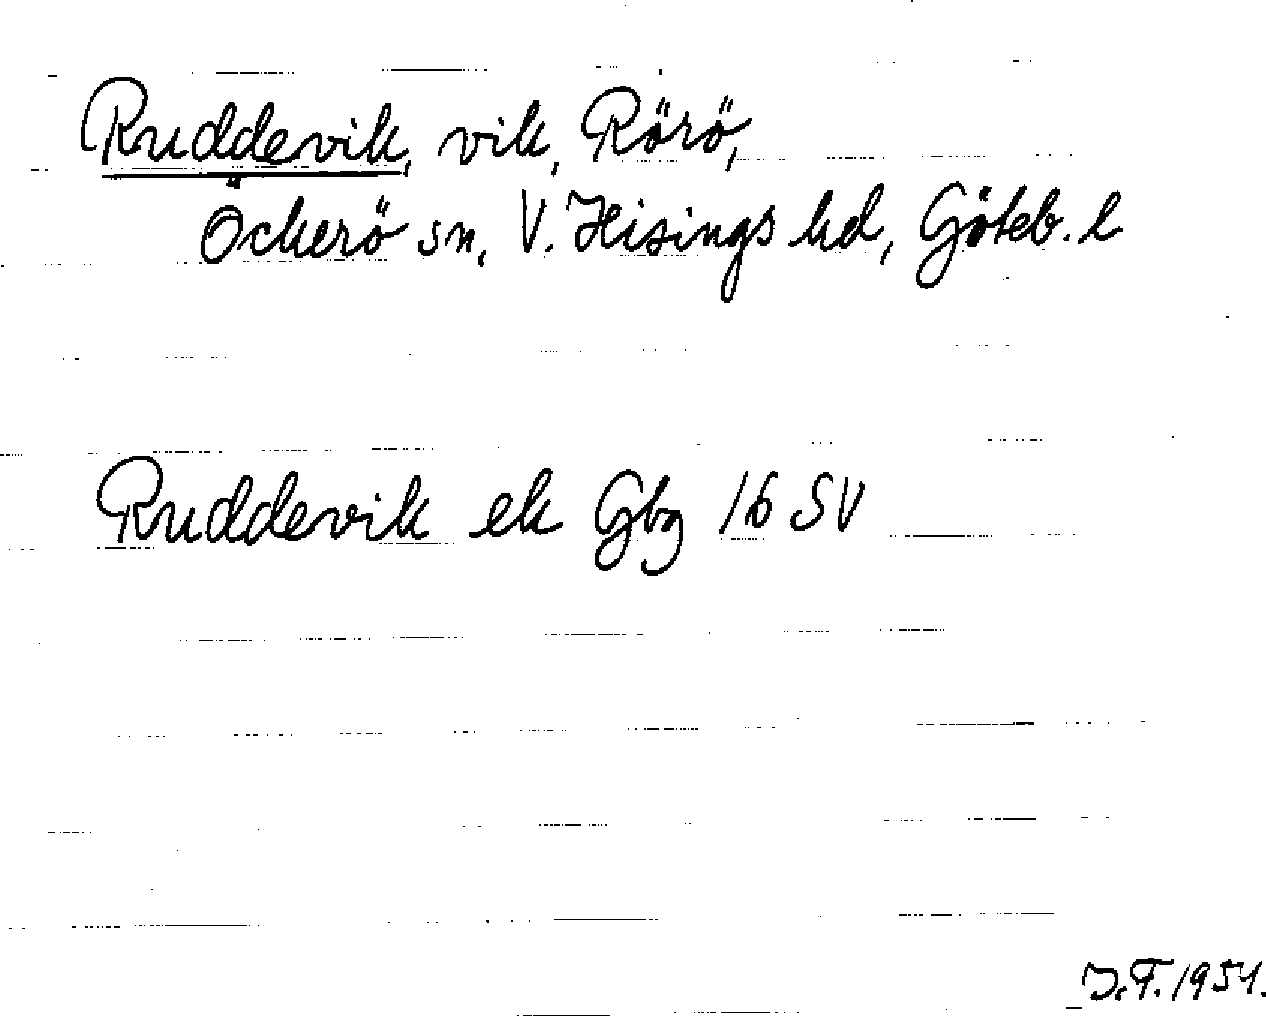 Ruddevik, vik, Rörö,
Öckerö sn, V. Hisings hd, Göteb. l
Ruddevik ek Gbg 16 SV
J.F. 1951.